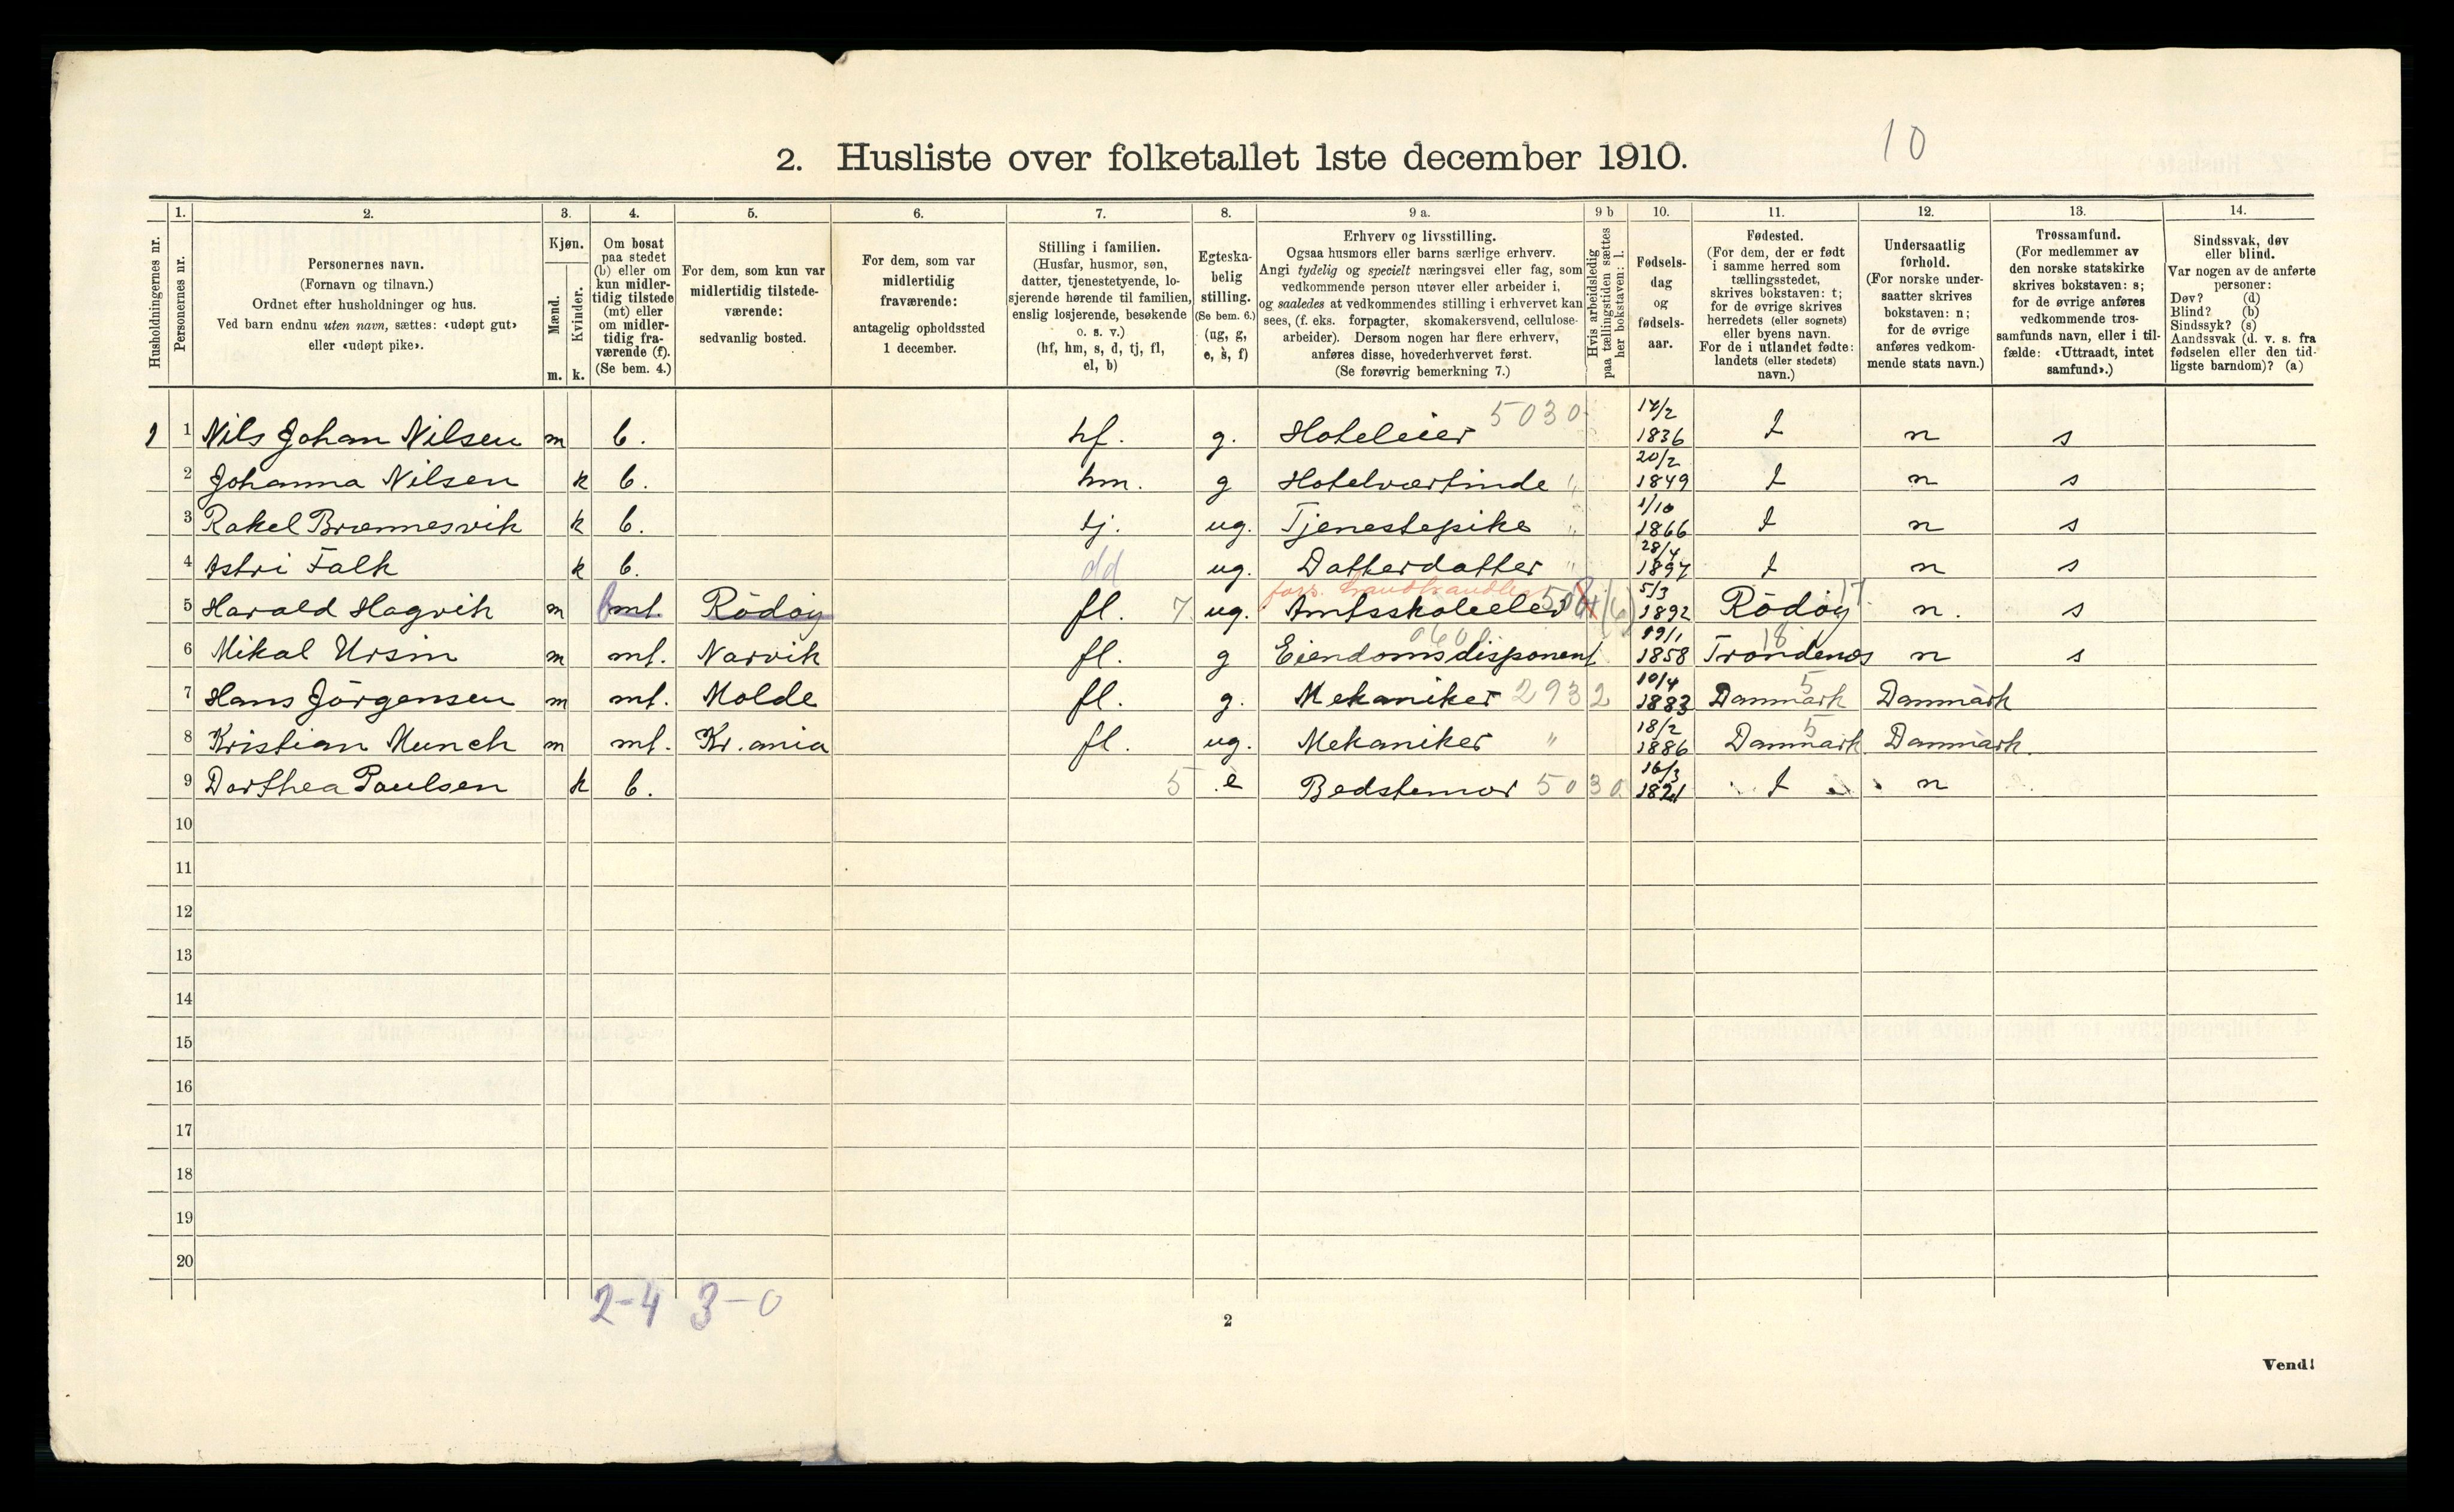 10
2. Husliste over folketallet 1ste december 1910.
Husholdningernes nr.
1. Personernes nr.
2. Personernes navn.
(Fornavn og tilnavn.)
Ordnet efter husholdninger og hus.
Ved barn endnu uten navn, sættes: «udøpt gut»
eller «udøpt pike».
3. Kjøn.
Mænd. m.
Kvinder. k.
4. Om bosat
paa stedet
(b) eller om
kun midler-
tidig tilstede
(mt) eller
om midler-
tidig fra-
værende (f).
(Se bem. 4.)
5. For dem, som kun var
midlertidig tilstede-
værende:
sedvanlig bosted.
6. For dem, som var
midlertidig
fraværende:
antagelig opholdssted
1 december.
7. Stilling i familien.
(Husfar, husmor, søn,
datter, tjenestetyende, lo-
sjerende hørende til familien,
enslig losjerende, besøkende
o. s. v.)
(hf, hm, s, d, tj, fl,
el, b)
8. Egteska-
belig
stilling.
(Se bem. 6.)
(ug, g,
e, s, f)
9 a. Erhverv og livsstilling.
Ogsaa husmors eller barns særlige erhverv.
Angi tydelig og specielt næringsvei eller fag, som
vedkommende person utøver eller arbeider i,
og saaledes at vedkommendes stilling i erhvervet kan
sees, (f. eks. forpagter, skomakersvend, cellulose-
arbeider). Dersom nogen har flere erhverv,
anføres disse, hovederhvervet først.
(Se forøvrig bemerkning 7.)
9 b Hvis arbeidsledig
paa tællingstiden sættes
her bokstaven: l.
10. Fødsels-
dag
og
fødsels-
aar.
11. Fødested.
(For dem, der er født
i samme herred som
tællingsstedet,
skrives bokstaven: t;
for de øvrige skrives
herredets (eller sognets)
eller byens navn.
For de i utlandet fødte:
landets (eller stedets)
navn.)
12. Undersaatlig
forhold.
(For norske under-
saatter skrives
bokstaven: n;
for de øvrige
anføres vedkom-
mende stats navn.)
13. Trossamfund.
(For medlemmer av
den norske statskirke
skrives bokstaven: s;
for de øvrige anføres
vedkommende tros-
samfunds navn, eller i til-
fælde: «Uttraadt, intet
samfund».)
14. Sindssvak, døv
eller blind.
Var nogen av de anførte
personer:
Døv? (d)
Blind? (b)
Sindssyk? (s)
Aandssvak (d. v. s. fra
fødselen eller den tid-
ligste barndom)? (a)
1 1 Nils Johan Nilsen m b. hf. g. Hoteleier 5030 17/2 1836 t n s
2 Johanna Nilsen k b. hm. g Hotelværtinde " 20/2 1849 t n s
3 Rakel Brænnesvik k b. tj. ug. Tjenestepike " 1/10 1866 t n s
4 Astri Falk k b. dd ug. Datterdatter " 28/4 1897 t n s
5 Harald Hagvik m b mt. Rödöy fl. 7 ug. fors. Landhandler Amtsskoleelev 5/3 1892 Rödöy 17 n. s
6 Mikal Ursin m mt. Narvik fl. g Eiendomsdisponent 0600 19/1 1858 Trondenes 18 n s
7 Hans Jörgensen m mt. Molde fl. g. Mekaniker 2932 10/4 1883 Danmark 5 Danmark
8 Kristian Munch m mt. Kr.ania fl. ug. Mekaniker " 18/2 1886 Danmark 5 Danmark.
9 Dorthea Paulsen k b. 5 e Bedstemor 5030 16/3 1821 t n
10
11
12
13
14
15
16
17
18
19
20
2-4 3-0
2
Vend!